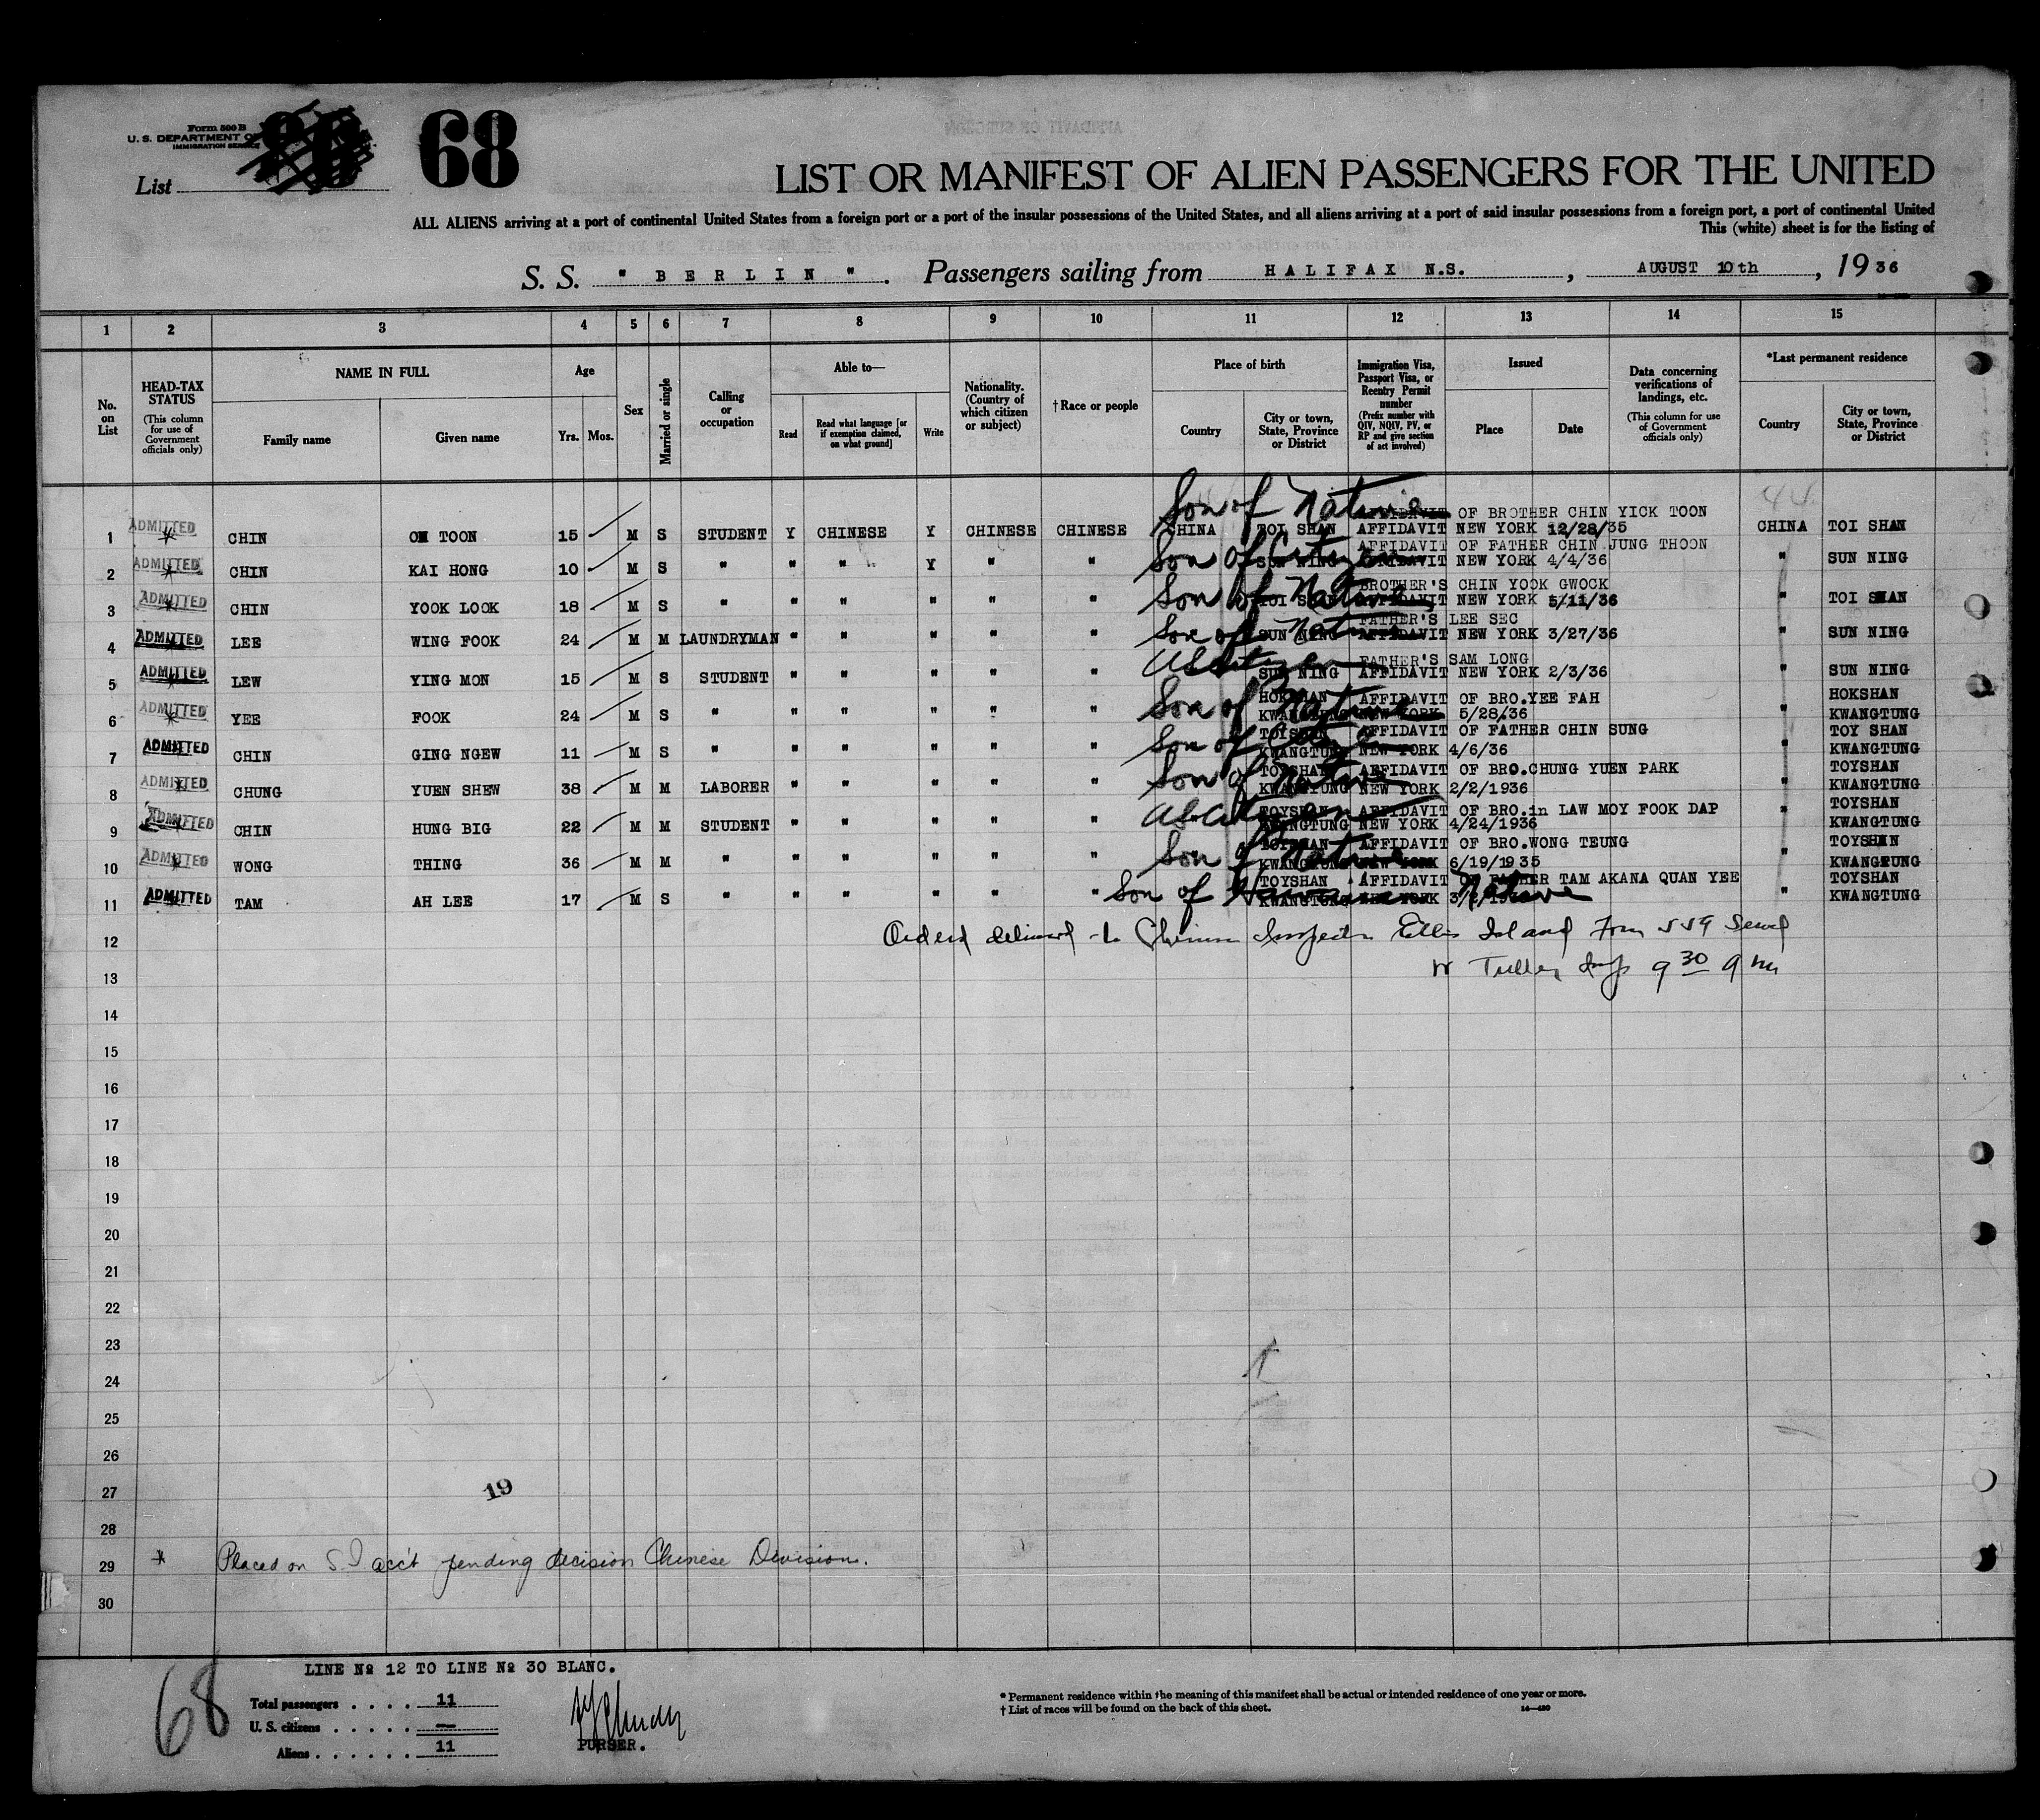 Form 500 B
U. S. DEPARTMENT OF
IMMIGRATION SERVICE
List 68
LIST OR MANIFEST OF ALIEN PASSENGERS FOR THE UNITED
ALL ALIENS arriving at a port of continental United States from a foreign port or a port of the insular possessions of the United States, and all aliens arriving at a port of said insular possessions from a foreign port, a port of continental United
This (white) sheet is for the listing of
S. S. "BERLIN". Passengers sailing from HALIFAX N.S., AUGUST 10th, 1936
1 2 3 4 5 6 7 8 9 10 11 12 13 14 15
No. on List
HEAD-TAX STATUS (This column for use of Government officials only)
NAME IN FULL
Family name
Given name
Age
Yrs. Mos.
Sex
Married or single
Calling or occupation
Able to—
Read
Read what language [or if exemption claimed, on what ground]
Write
Nationality. (Country of which citizen or subject)
†Race or people
Place of birth
Country
City or town, State, Province or District
Immigration Visa, Passport Visa, or Reentry Permit number (Prefix number with QIV, NQIV, PV, or RP and give section of act involved)
Issued
Place
Date
Data concerning verifications of landings, etc. (This column for use of Government officials only)
*Last permanent residence
Country
City or town, State, Province or District
Son of Native
AFFIDAVIT OF BROTHER CHIN YICK TOON
1 ADMITTED CHIN OM TOON 15 M S STUDENT Y CHINESE Y CHINESE CHINESE CHINA TOI SHAN AFFIDAVIT NEW YORK 12/28/35 CHINA TOI SHAN
Son of Citizen
AFFIDAVIT OF FATHER CHIN JUNG THOON
2 ADMITTED CHIN KAI HONG 10 M S " " " Y " " SUN NING AFFIDAVIT NEW YORK 4/4/36 " SUN NING
Son of Native
BROTHER'S CHIN YOOK GWOCK
3 ADMITTED CHIN YOOK LOOK 18 M S " " " " " " TOI SHAN AFFIDAVIT NEW YORK 5/11/36 " TOI SHAN
Son of Native
FATHER'S LEE SEC
4 ADMITTED LEE WING FOOK 24 M M LAUNDRYMAN " " " " " SUN NING AFFIDAVIT NEW YORK 3/27/36 " SUN NING
US Citizen
FATHER'S SAM LONG
5 ADMITTED LEW YING MON 15 M S STUDENT " " " " " SUN NING AFFIDAVIT NEW YORK 2/3/36 " SUN NING
Son of Native
HOKSHAN AFFIDAVIT OF BRO.YEE FAH HOKSHAN
6 ADMITTED YEE FOOK 24 M S " " " " " " KWANGTUNG NEW YORK 5/28.36 " KWANGTUNG
Son of
TOYSHAN AFFIDAVIT OF FATHER CHIN SUNG TOY SHAN
7 ADMITTED CHIN GING NGEW 11 M S " " " " " " KWANGTUNG NEW YORK 4/6/36 " KWANGTUNG
Son of Native
TOYSHAN AFFIDAVIT OF BRO.CHUNG YUEN PARK TOYSHAN
8 ADMITTED CHUNG YUEN SHEW 38 M M LABORER " " " " " KWANGTUNG NEW YORK 2/2/1936 " KWANGTUNG
TOYSHAN AFFIDAVIT OF BRO.in LAW MOY FOOK DAP TOYSHAN
9 ADMITTED CHIN HUNG BIG 22 M M STUDENT " " " " " KWANGTUNG NEW YORK 4/24/1936 " KWANGTUNG
Son of Native
TOYSHAN AFFIDAVIT OF BRO.WONG TEUNG TOYSHAN
10 ADMITTED WONG THING 36 M M " " " " " " KWANGTUNG NEW YORK 6/19/1935 " KWANGTUNG
Son of Native
TOYSHAN AFFIDAVIT OF FATHER TAM AKANA QUAN YEE TOYSHAN
11 ADMITTED TAM AH LEE 17 M S " " " " " " KWANGTUNG NEW YORK " KWANGTUNG
12 Orders delivered to Chinese Inspector Ellis Island Form
13 9 30
14
15
16
17
18
19
20
21
22
23
24
25
26
27 19
28
29 * Placed on S.I acc't pending decision Chinese Division.
30
LINE No 12 TO LINE No 30 BLANC.
68
Total passengers . . . . 11
U. S. citizens . . . . . —
Aliens . . . . . . 11
PURSER.
* Permanent residence within the meaning of this manifest shall be actual or intended residence of one year or more.
† List of races will be found on the back of this sheet.